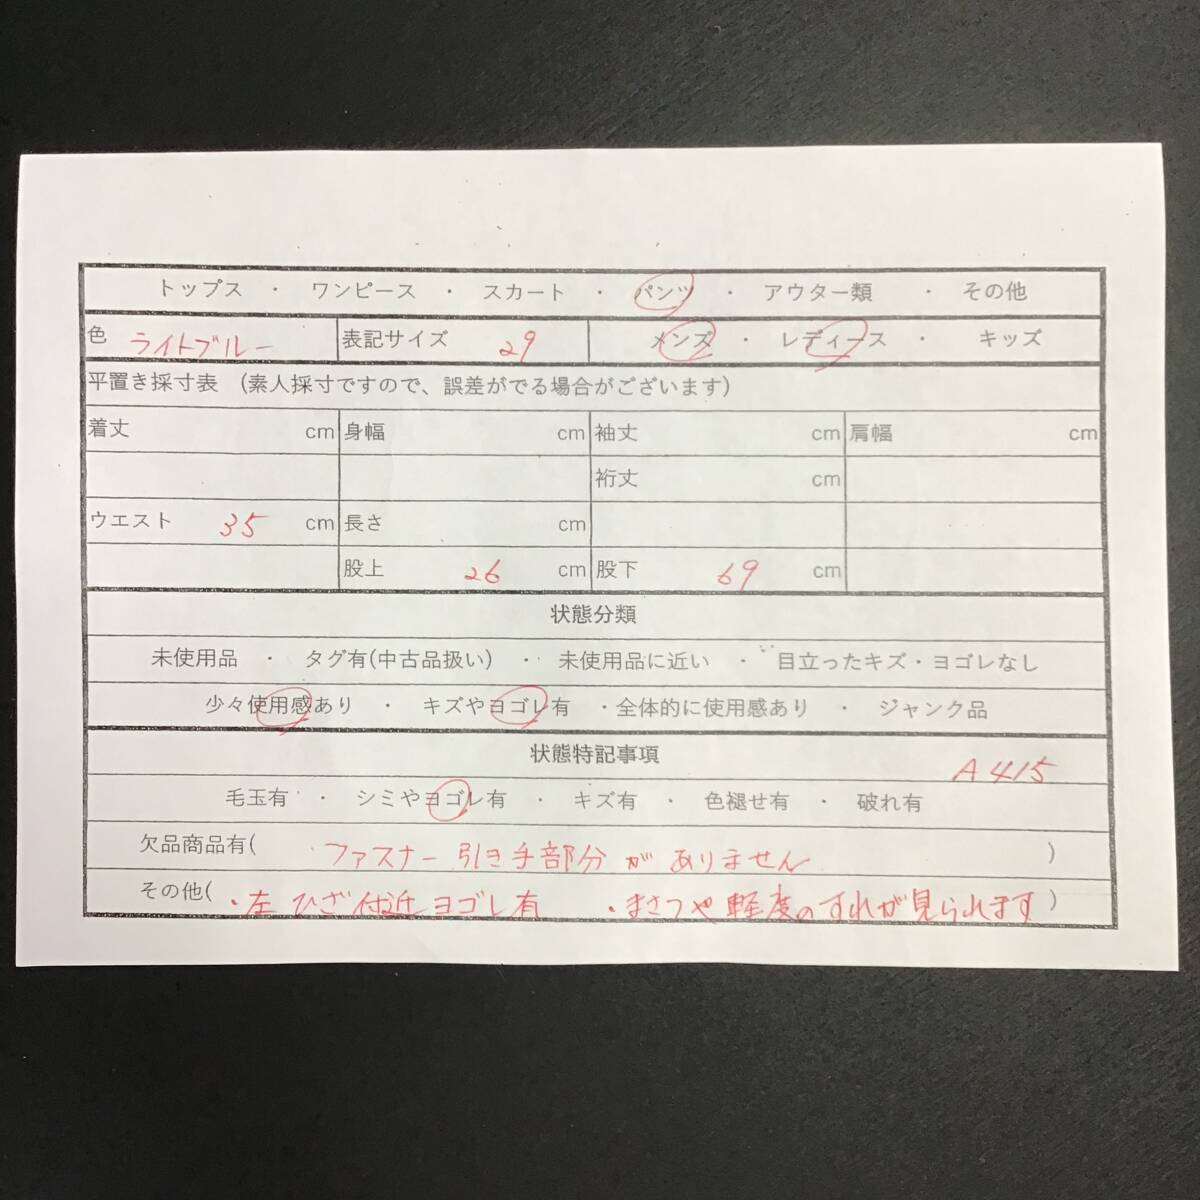 トップス ・ ワンピース ・ スカート ・ パンツ ・ アウター類 ・ その他
色 ライトブルー 表記サイズ 29 メンズ ・ レディース ・ キッズ
平置き採寸表 (素人採寸ですので、誤差がでる場合がございます)
着丈 cm 身幅 cm 袖丈 cm 肩幅 cm
裄丈 cm
ウエスト 35 cm 長さ cm
股上 26 cm 股下 69 cm
状態分類
未使用品 ・ タグ有(中古品扱い) ・ 未使用品に近い ・ 目立ったキズ・ヨゴレなし
少々使用感あり ・ キズやヨゴレ有 ・全体的に使用感あり ・ ジャンク品
状態特記事項 A415
毛玉有 ・ シミやヨゴレ有 ・ キズ有 ・ 色褪せ有 ・ 破れ有
欠品商品有( ファスナー引き手部分がありません )
その他( ・左ひざ付近ヨゴレ有 ・まさつや軽度のすれが見られます )